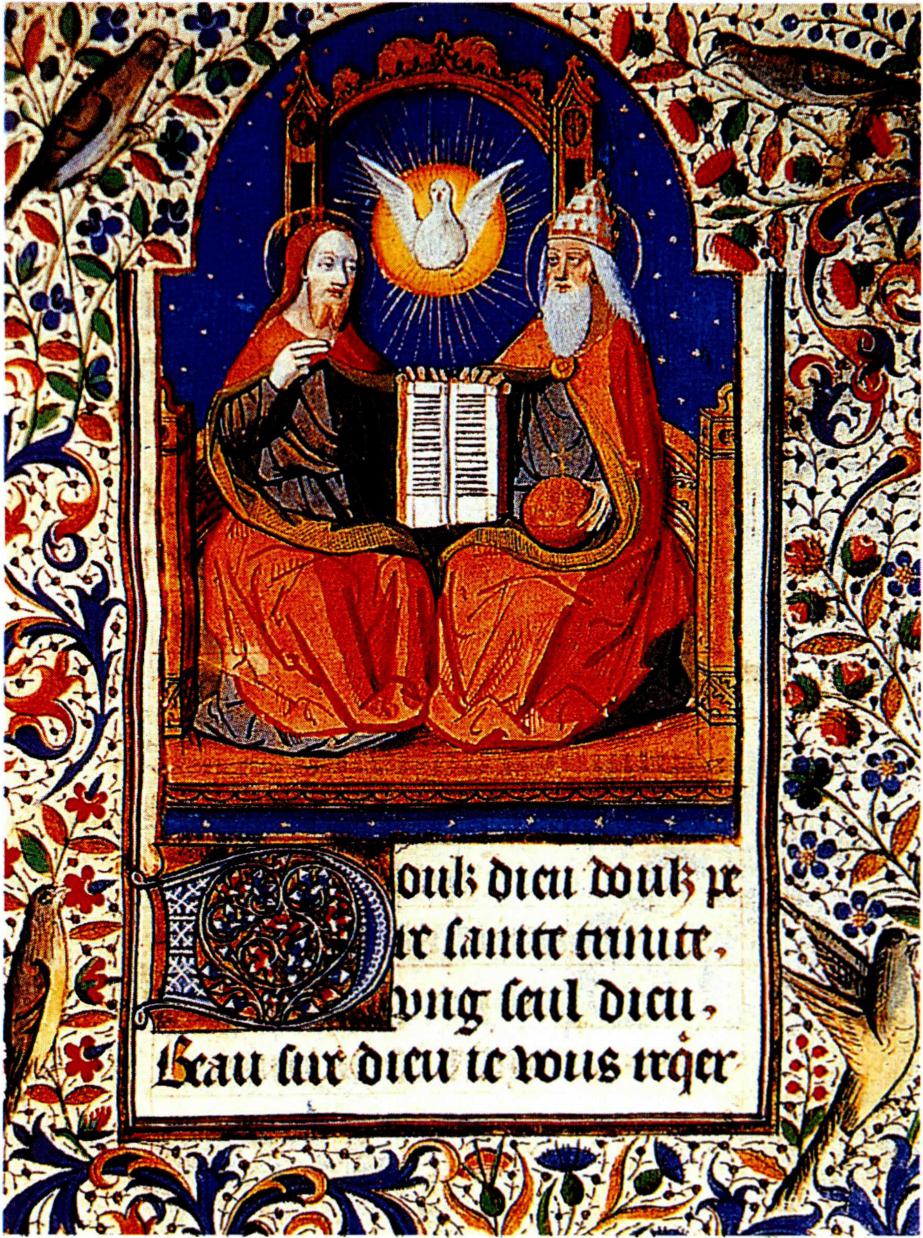 Doulz dieu doulz pe
re saincte trinite.
vng seul dieu.
Beau sire dieu ie vous reqͥer